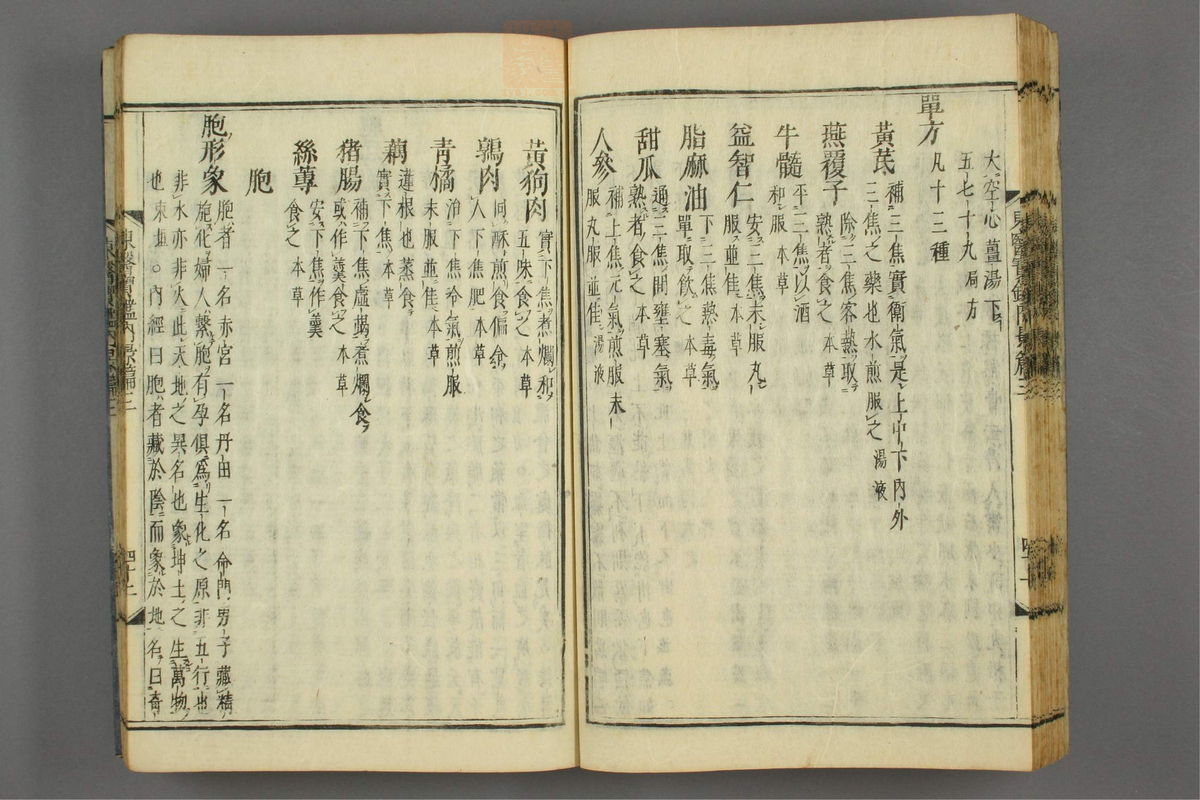 大空心薑湯下
五七十丸局方
單方
凡十三種
黃芪
補三焦實衛氣是上中下內外
三焦之藥也水煎服之湯液
燕覆子
除三焦客熱取
熟者食之本草
牛髓
平三焦以酒
和服本草
益智仁
安三焦末服丸
服並佳本草
脂麻油
下三焦熱毒氣
單取飲之本草
甜瓜
通三焦間壅塞氣
熟者食之本草
人參
補上焦元氣煎服末
服丸服並佳湯液
黃狗肉
實下焦煮爛和
五味食之本草
鶉肉
同酥煎食偏
人下焦肥本草
青橘
治下焦冷氣煎服
末服並佳本草
藕
蓮根也蒸食
實下焦本草
猪腸
補下焦虛竭煮爛食
或作羹食之本草
絲蓴
安下焦作羹
食之本草
胞
胞形象
胞者一名赤宮一名丹田一名命門男子藏精
施化婦人繫胞有孕俱爲生化之原非五行也
非水亦非火此天地之異名也象坤土之生萬物
也東垣○內經曰胞者藏於陰而象於地名曰奇
東醫寶鑑內景篇三
四十二